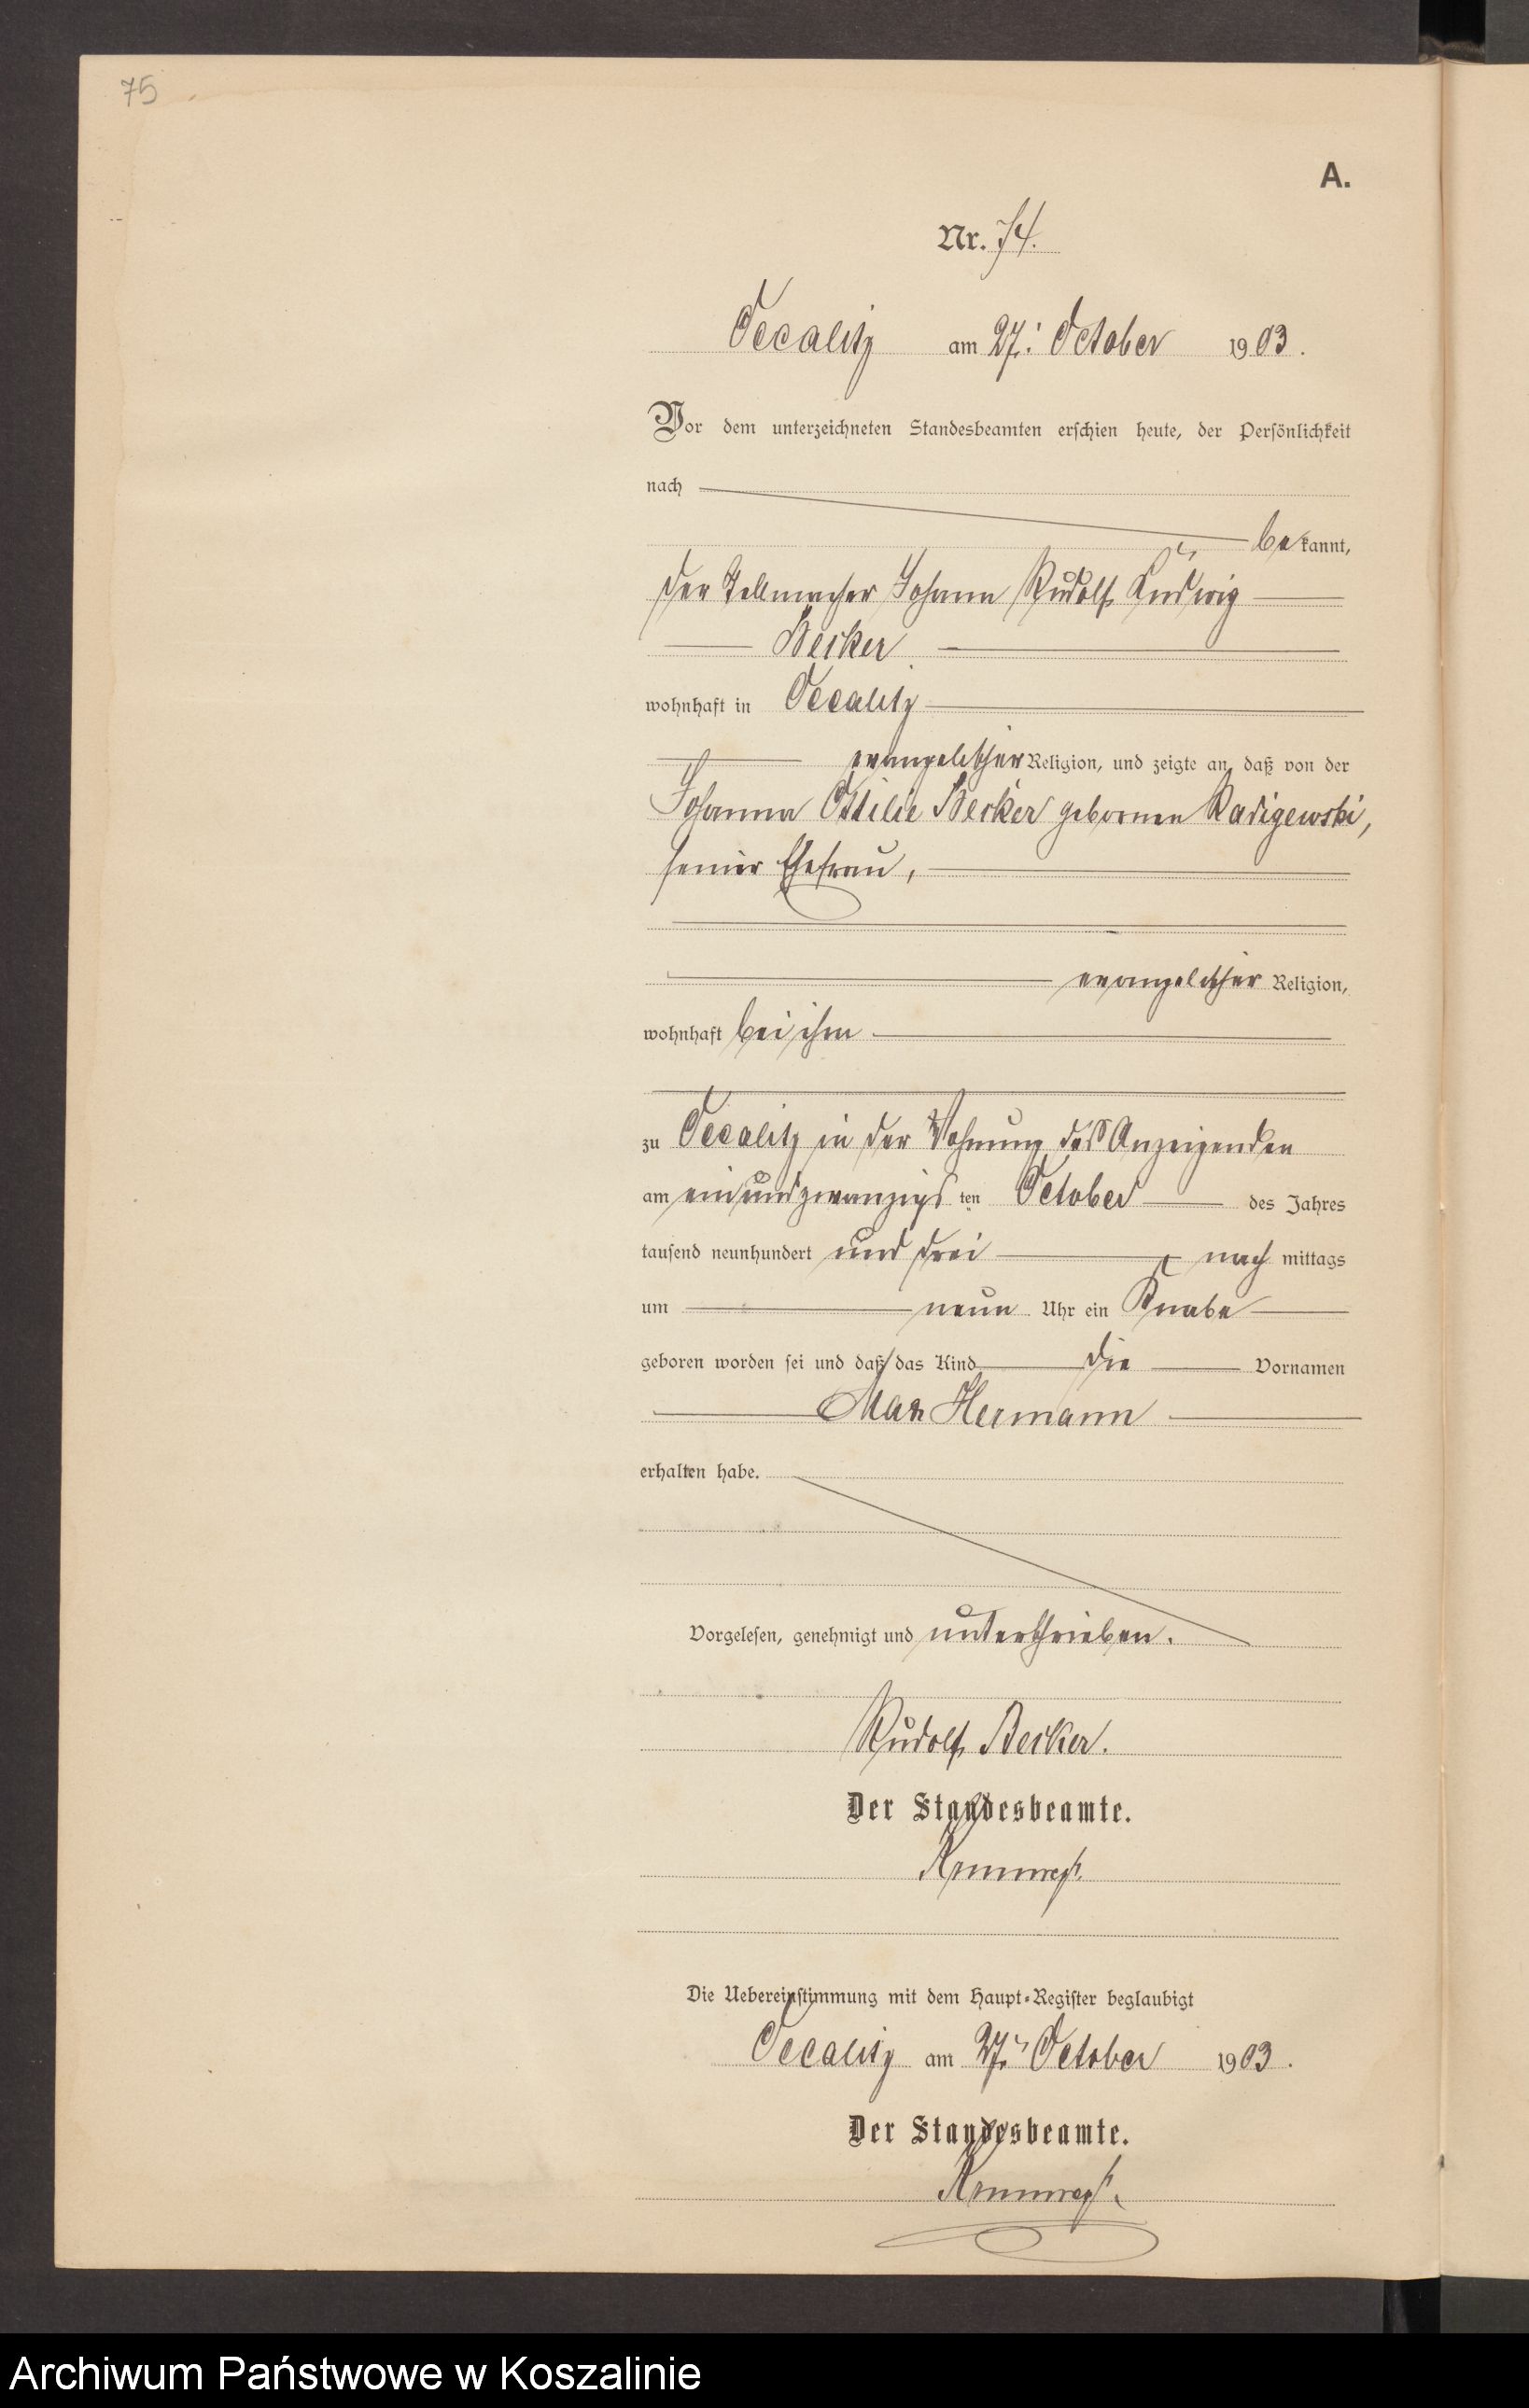 75
A.
Nr. 74.
Occalitz am 27. October 1903.
Vor dem unterzeichneten Standesbeamten erschien heute, der Persönlichkeit
nach
bekannt,
der Stellmacher Johann Rudolf Ludwig
Becker
wohnhaft in Occalitz
evangelischer Religion, und zeigte an, daß von der
Johanna Ottilie Becker gebornen Radigewski,
seiner Ehefrau,
evangelischer Religion,
wohnhaft bei ihm
zu Occalitz in der Wohnung des Anzeigenden
am einundzwanzigsten October des Jahres
tausend neunhundert und drei nachmittags
um neun Uhr ein Knabe
geboren worden sei und daß das Kind die Vornamen
Max Hermann
erhalten habe.
Vorgelesen, genehmigt und unterschrieben.
Rudolf Becker.
Der Standesbeamte.
Die Uebereinstimmung mit dem Haupt-Register beglaubigt
Occalitz am 27. October 1903.
Der Standesbeamte.
Archiwum Państwowe w Koszalinie